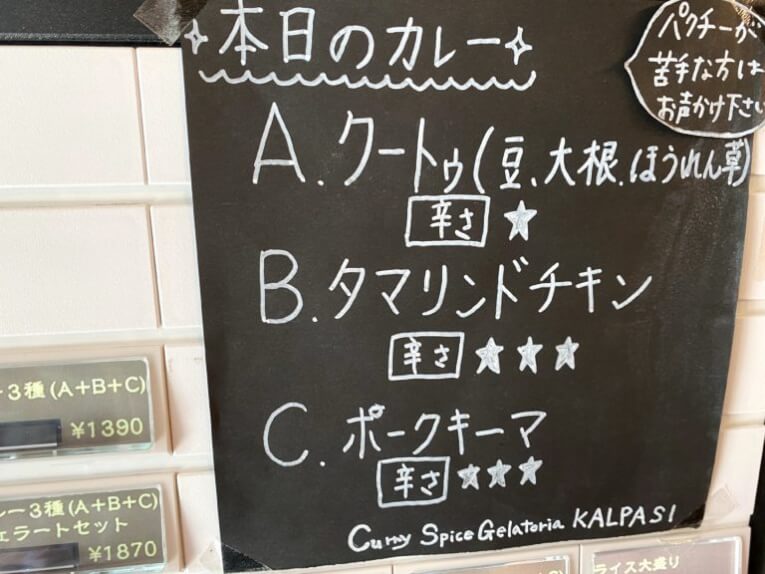 ✧本日のカレー✧
パクチーが
苦手な方は
お声かけ下さい
A.クートゥ(豆、大根.ほうれん草)
辛さ ★
B.タマリンドチキン
辛さ ★★★
C.ポークキーマ
辛さ ★★★
Curry Spice Gelatoria KALPASI
3種(A+B+C)
¥1390
ー3種(A+B+C)
ェラートセット
¥1870
ライス大盛り